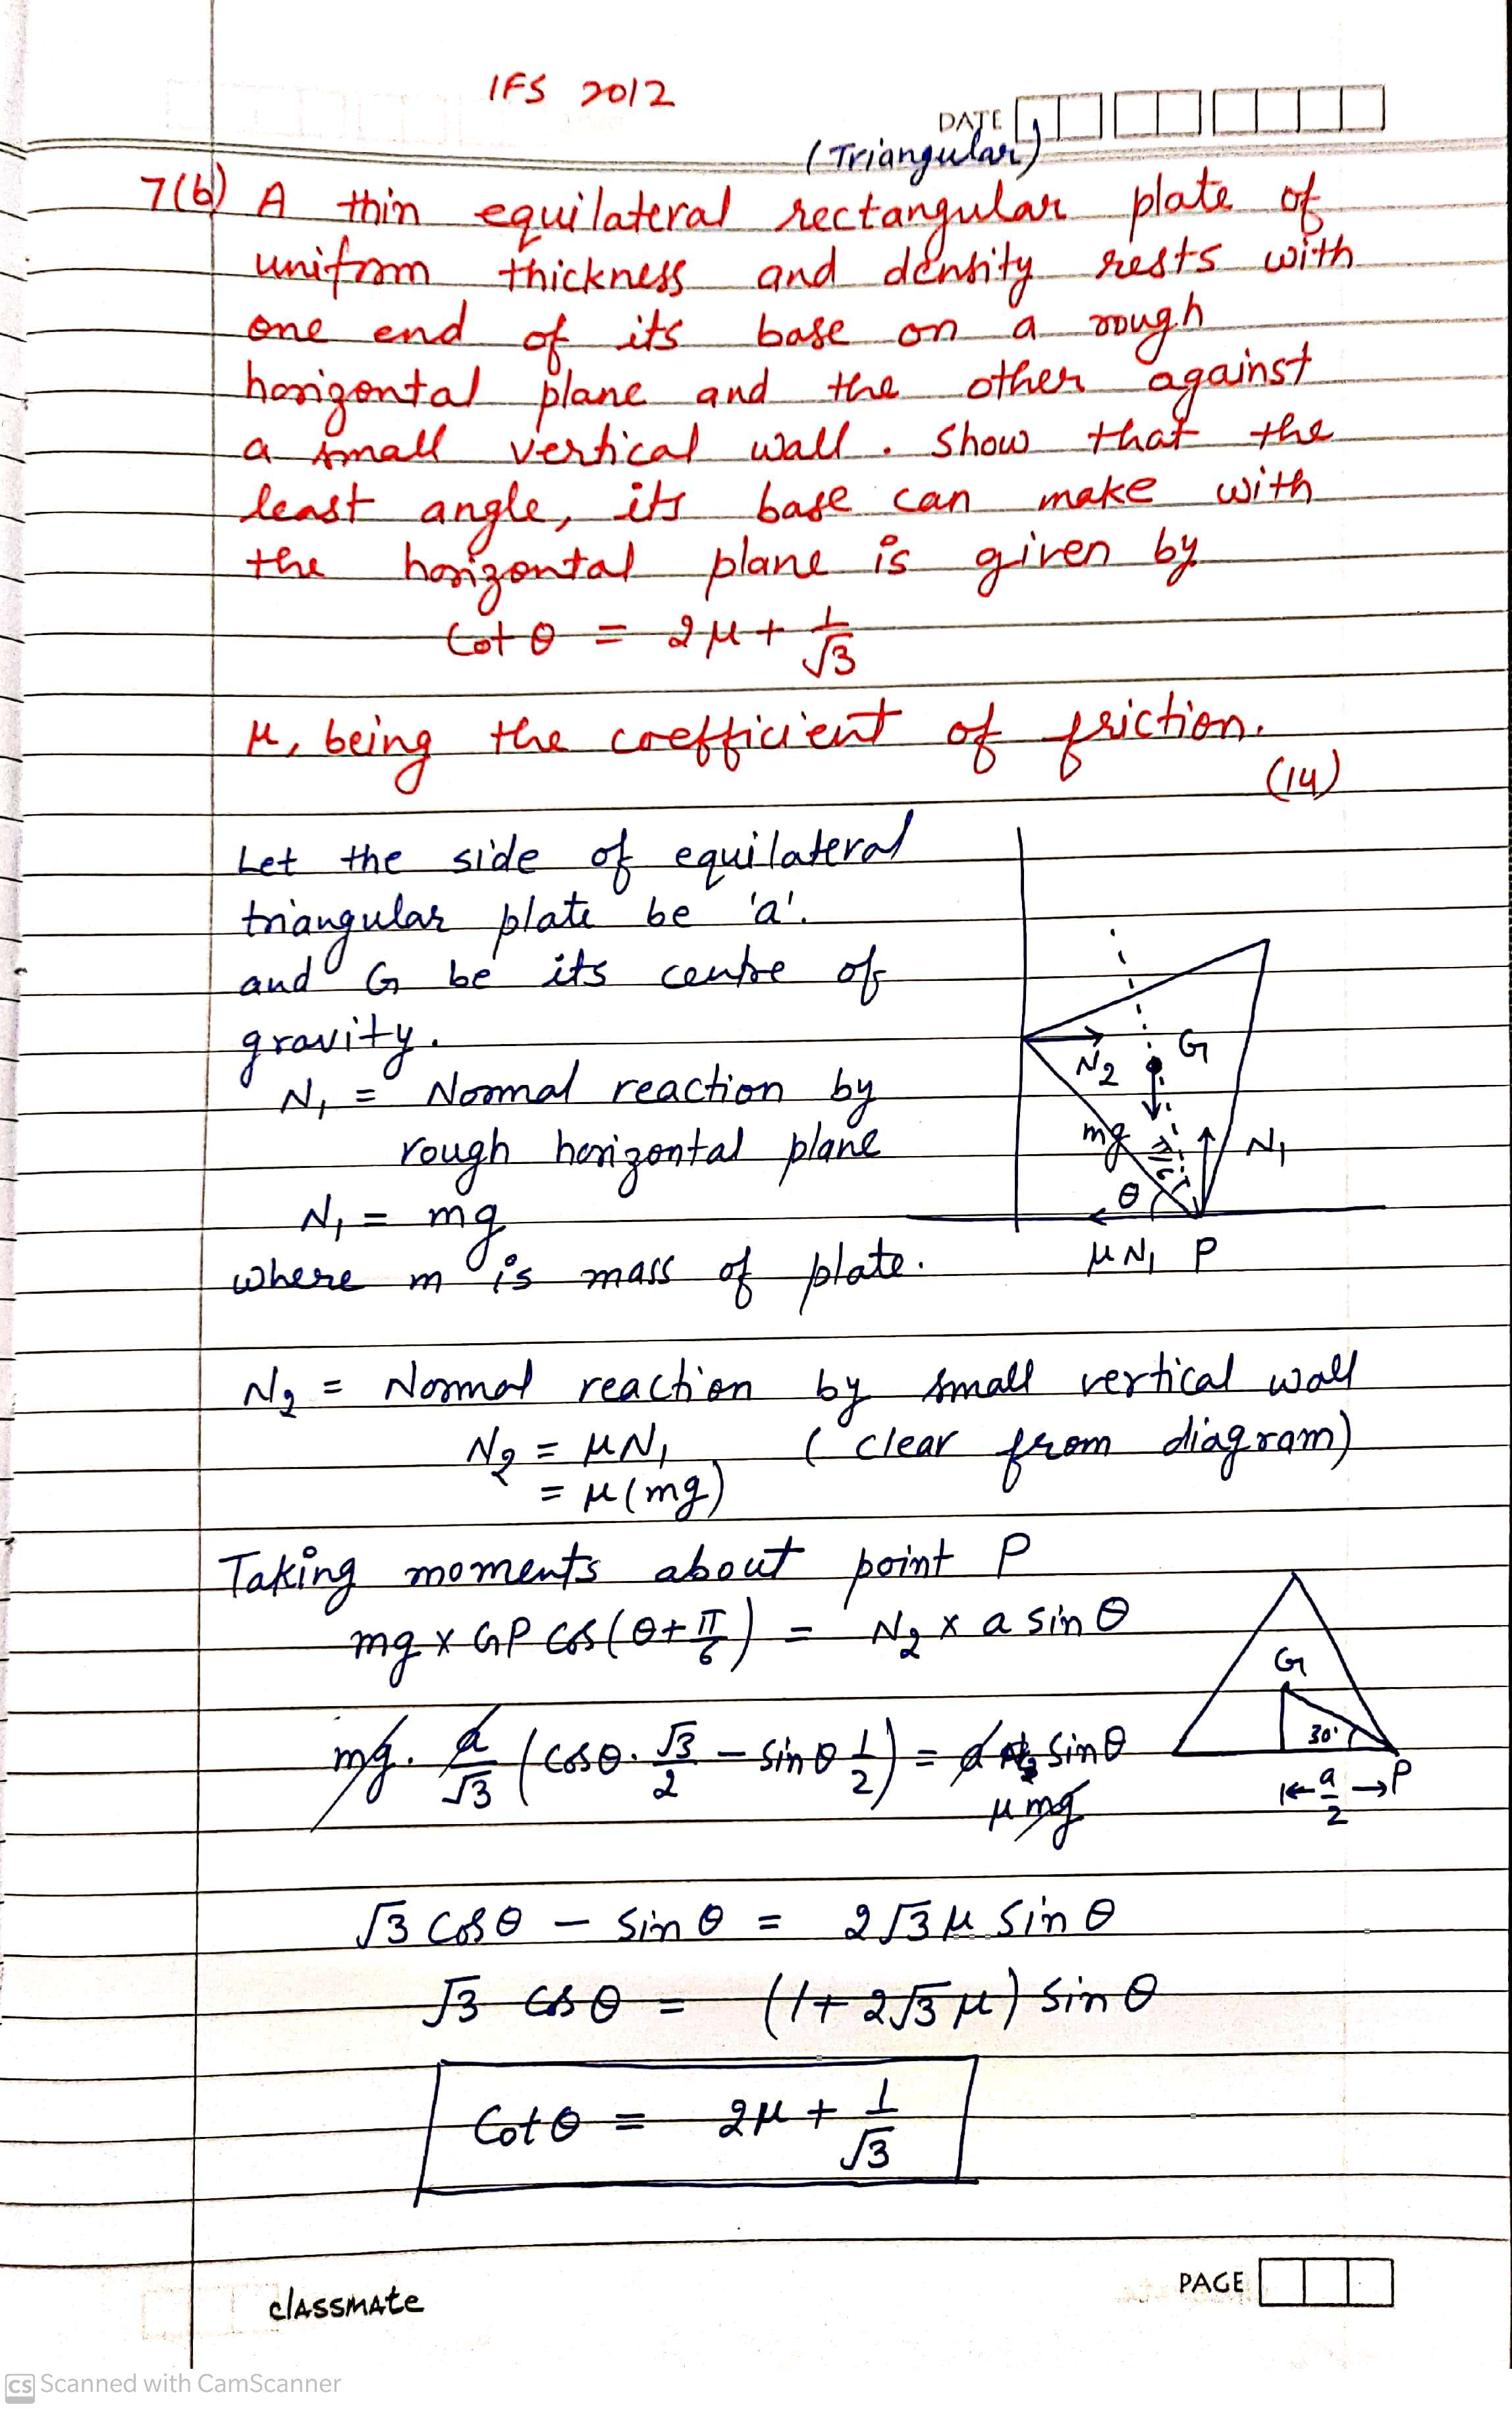 IFS 2012
DATE
(Triangular)
7(b) A thin equilateral rectangular plate of
uniform thickness and density rests with
one end of its base on a rough
horizontal plane and the other against
a small vertical wall. Show that the
least angle, its base can make with
the horizontal plane is given by
Cot θ = 2μ + 1/√3
μ, being the coefficient of friction.
(14)
Let the side of equilateral
triangular plate be 'a'.
and G be its centre of
gravity.
N₁ = Normal reaction by
rough horizontal plane
N₁ = mg
where m is mass of plate.
N₂
G
mg
π/6
N₁
θ
μN₁ P
N₂ = Normal reaction by small vertical wall
N₂ = μN₁ (clear from diagram)
= μ(mg)
Taking moments about point P
mg × GP cos(θ+π/6) = N₂ × a sin θ
mg. a/√3 (cosθ. √3/2 – sinθ 1/2) = a N₂ sinθ
μmg
G
30°
P
|← a/2 →
√3 cosθ – sin θ = 2√3 μ sin θ
√3 cos θ = (1+2√3 μ) sin θ
Cot θ = 2μ + 1/√3
classmate
PAGE
CS Scanned with CamScanner